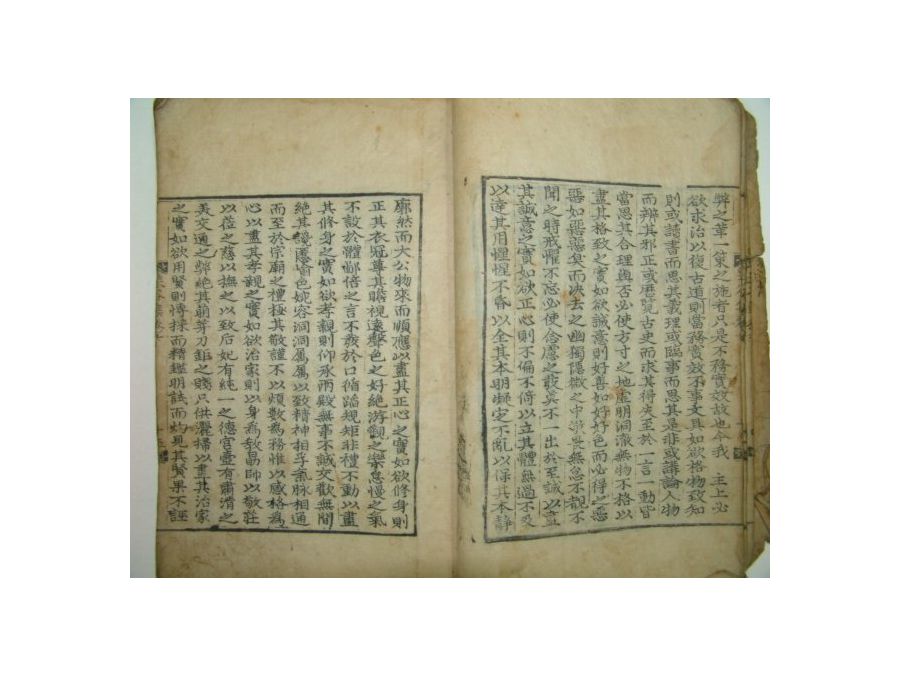 弊之革一策之施者只是不務實效故也今我 主上必
欲求治以復古道則當務實效不事文具如欲格物致知
則或讀書而思其義理或臨事而思其是非或講論人物
而辨其邪正或歷覽古史而求其得失至於一言一動皆
當思其合理與否必使方寸之地虛明洞澈無物不格以
盡其格致之實如欲誠意則好善如好好色而必得之惡
惡如惡惡臭而決去之幽獨隱微之中敬畏無怠不覩不
聞之時戒懼不忘必使念慮之發莫不一出於至誠以盡
其誠意之實如欲正心則不偏不倚以立其體無過不及
以達其用惺惺不昏以全其本明凝定不亂以保其本靜
廓然而大公物來而順應以盡其正心之實如欲修身則
正其衣冠尊其瞻視遠聲色之好絶游觀之樂怠慢之氣
不設於體鄙倍之言不發於口循蹈規矩非禮不動以盡
其修身之實如欲孝親則仰承兩殿無事不誠交歡無間
絶其纔慝愉色婉容洞洞屬屬以致精神相孚氣脉相通
而至於宗廟之禮極其敬謹不以煩數爲務惟以感格爲
心以盡其孝親之實如欲治家則以身爲敎勗帥以敬莊
以莅之慈以撫之以致后妃有純一之德宮壼有肅清之
美交通之弊絶其萌芽刀鉅之賤只供灑掃以盡其治家
之實如欲用賢則博採而精鑑明試而灼見其賢果不誣